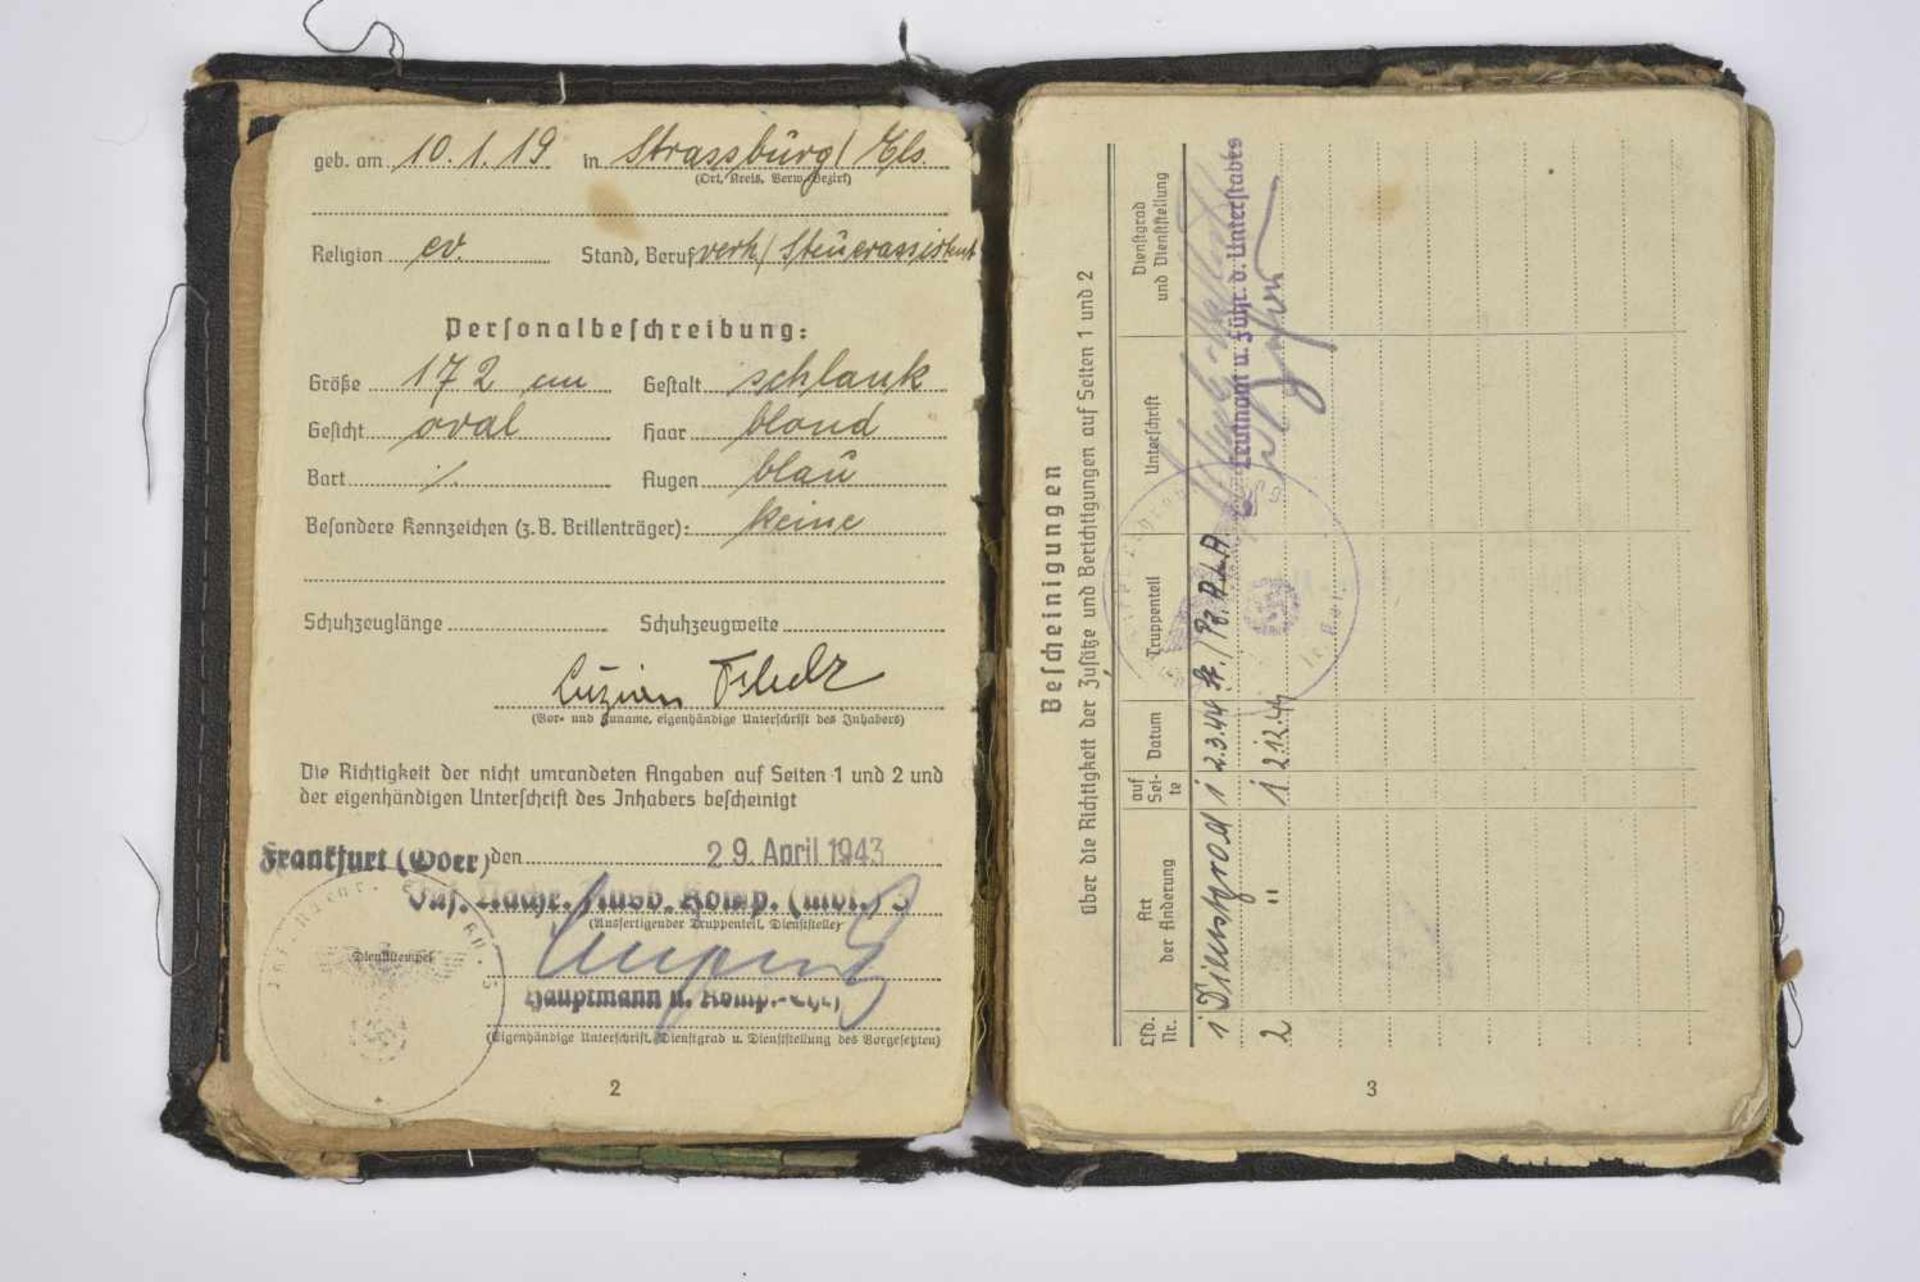 geb. am 10.1.19 in Strassburg/Els.
(Ort, Kreis, Verw.-Bezirk)
Religion ev. Stand, Beruf verh/Steuerassistent
Personalbeschreibung:
Größe 172 cm Gestalt schlank
Gesicht oval Haar blond
Bart ./. Augen blau
Besondere Kennzeichen (z. B. Brillenträger): keine
Schuhzeuglänge Schuhzeugweite
Luzian
(Vor- und Zuname, eigenhändige Unterschrift des Inhabers)
Die Richtigkeit der nicht umrandeten Angaben auf Seiten 1 und 2 und
der eigenhändigen Unterschrift des Inhabers bescheinigt
Frankfurt (Oder) den 29. April 1943
Inf. Nachr. Ausb. Komp. (mot.) 3
(Ausfertigender Truppenteil, Dienststelle)
Dienststempel
Hauptmann u. Komp.-Chef
(Eigenhändige Unterschrift, Dienstgrad u. Dienststellung des Vorgesetzten)
2
Bescheinigungen
über die Richtigkeit der Zusätze und Berichtigungen auf Seiten 1 und 2
Lfd. Nr. Art der Änderung auf Sei-te Datum Truppenteil Unterschrift Dienstgrad und Dienststellung
1 Dienstgrad 1 2.3.44 St./Pz.
2 " 1 2.12.44 Leutnant u. Führ. d. Unterstabes
3